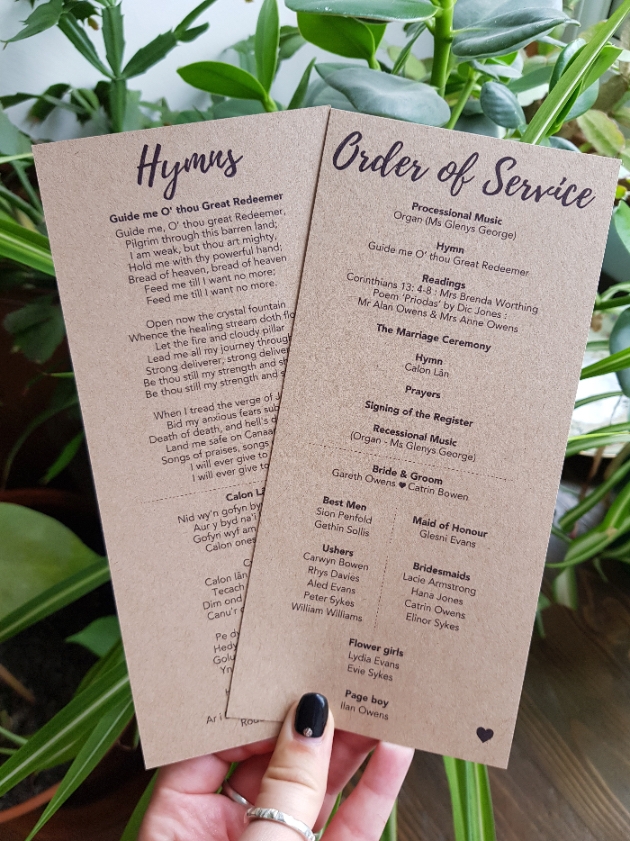 Hymns
Guide me O' thou Great Redeemer
Guide me, O' thou great Redeemer,
Pilgrim through this barren land;
I am weak, but thou art mighty,
Hold me with thy powerful hand;
Bread of heaven, bread of heaven
Feed me till I want no more;
Feed me till I want no more.
Open now the crystal fountain
Whence the healing stream doth
Let the fire and cloudy pillar
Lead me all my journey through
Strong deliverer, strong
Be thou still my strength and
Be thou still my strength and
When I tread the verge of
Bid my anxious fears
Death of death, and hell's
Land me safe on
Songs of praises, songs
I will ever give to
I will ever give to
Calon
Nid wy'n gofyn
Aur y byd na'i
Gofyn wyf am
Calon
Calon lân
Tecach
Dim ond
Canu'r
Pe
Ar
Order of Service
Processional Music
Organ (Ms Glenys George)
Hymn
Guide me O' thou Great Redeemer
Readings
Corinthians 13: 4-8 : Mrs Brenda Worthing
Poem 'Priodas' by Dic Jones :
Mr Alan Owens & Mrs Anne Owens
The Marriage Ceremony
Hymn
Calon Lân
Prayers
Signing of the Register
Recessional Music
(Organ - Ms Glenys George)
Bride & Groom
Gareth Owens ♥ Catrin Bowen
Best Men
Sion Penfold
Gethin Sollis
Ushers
Carwyn Bowen
Rhys Davies
Aled Evans
Peter Sykes
William Williams
Maid of Honour
Glesni Evans
Bridesmaids
Lacie Armstrong
Hana Jones
Catrin Owens
Elinor Sykes
Flower girls
Lydia Evans
Evie Sykes
Page boy
Ilan Owens